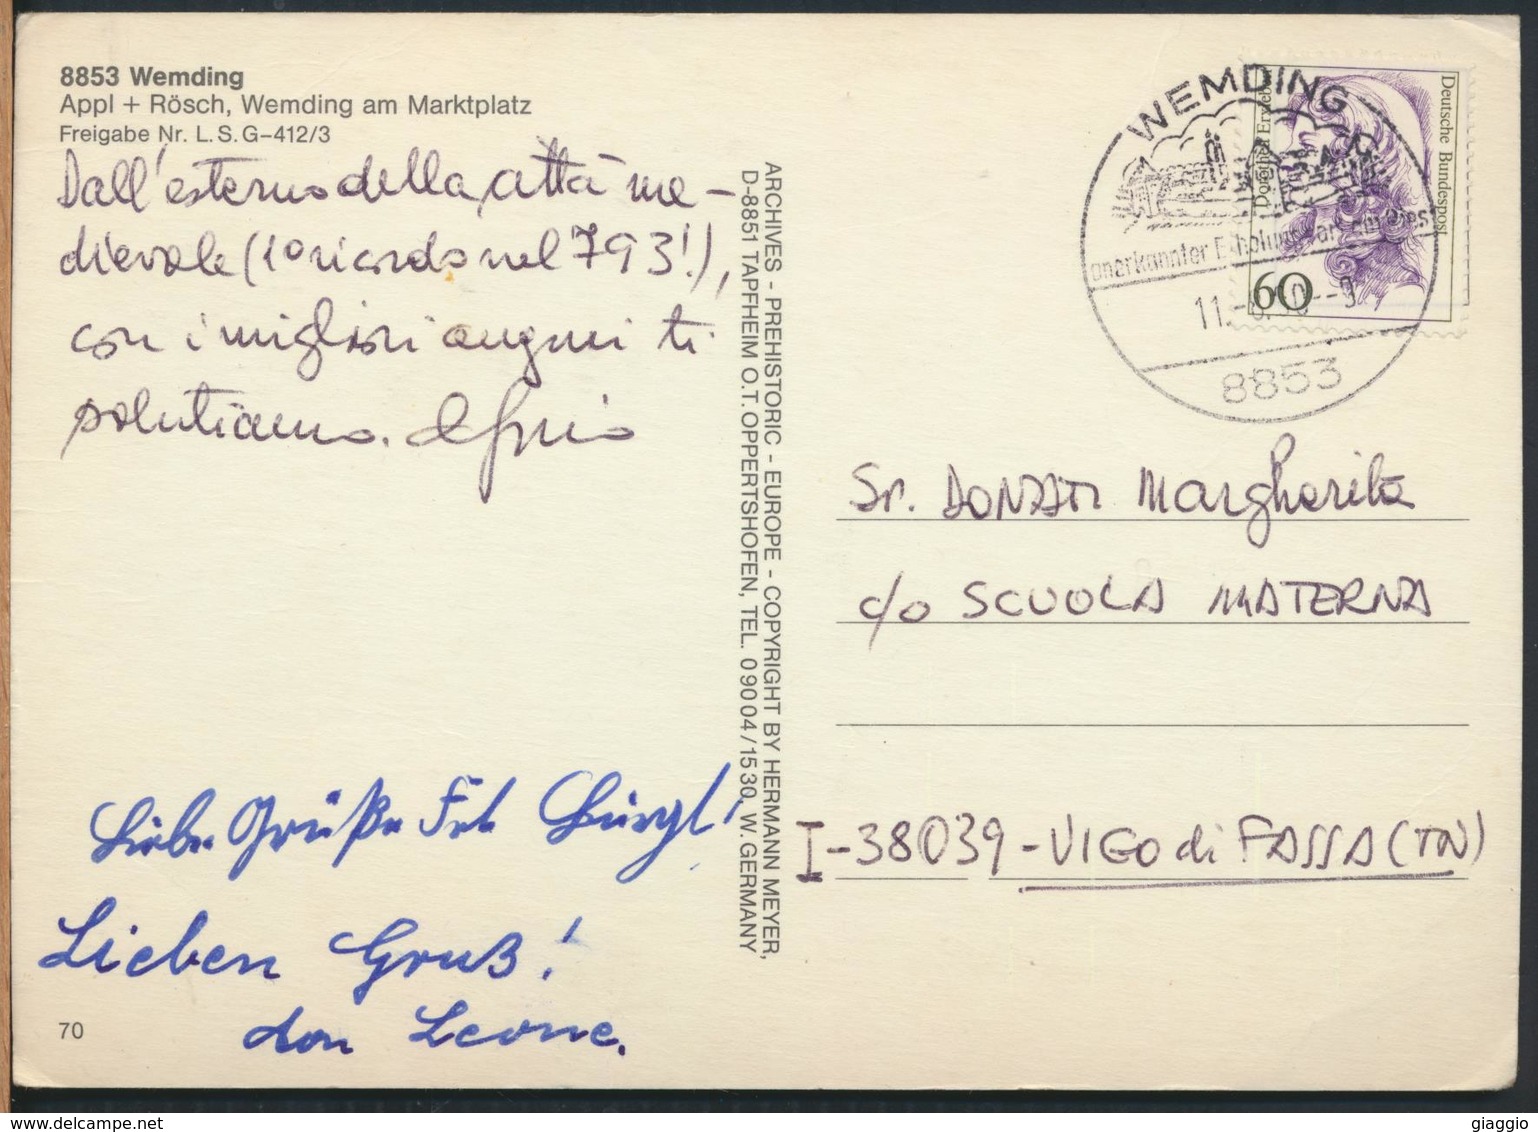 8853 Wemding
Appl + Rösch, Wemding am Marktplatz
Freigabe Nr. L. S. G-412/3
Dall'esterno della città me-
dievale (1º ricordo nel 793!),
con i migliori auguri ti
salutiamo.
Liebe Grüße Frl.
Lieben Gruß!
don Leone.
70
ARCHIVES - PREHISTORIC - EUROPE - COPYRIGHT BY HERMANN MEYER,
D-8851 TAPFHEIM O.T. OPPERTSHOFEN, TEL. 09004/1530, W. GERMANY
WEMDING
anerkannter Erholungsort
8853
Deutsche Bundespost
Dorothea Erxleben
60
Sr. DONATI Margherita
c/o SCUOLA MATERNA
I-38039-VIGO di FASSA (TN)
giaggio
delcampe.net